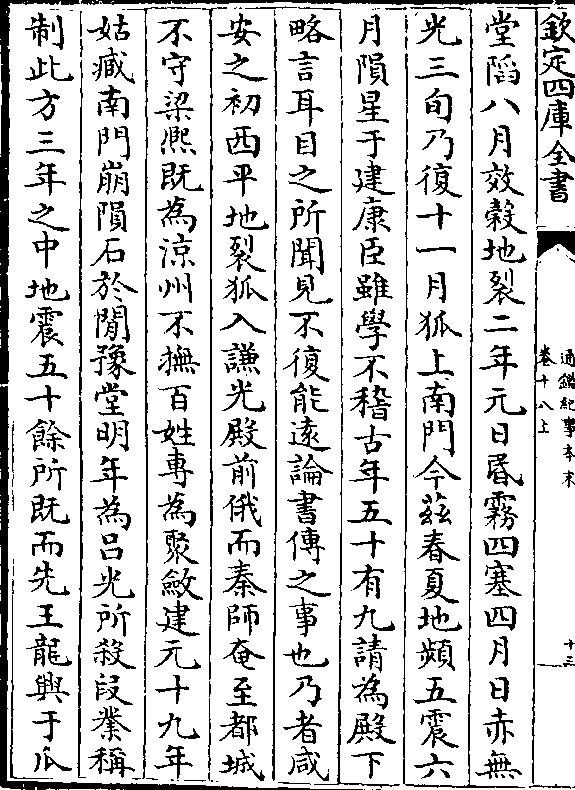 欽定四庫全書
通鑑紀事本末
卷十八上
十三
堂䧟八月效榖地裂二年元日昬霧四塞四月日赤無
光三旬乃復十一月狐上南門今兹春夏地頻五震六
月隕星于建康臣雖學不稽古年五十有九請為殿下
略言耳目之所聞見不復能逺論書傳之事也乃者咸
安之初西平地裂狐入謙光殿前俄而秦師奄至都城
不守梁熈既為涼州不撫百姓專為聚斂建元十九年
姑臧南門崩隕石於閒豫堂明年為吕光所殺段業稱
制此方三年之中地震五十餘所既而先王龍興于瓜